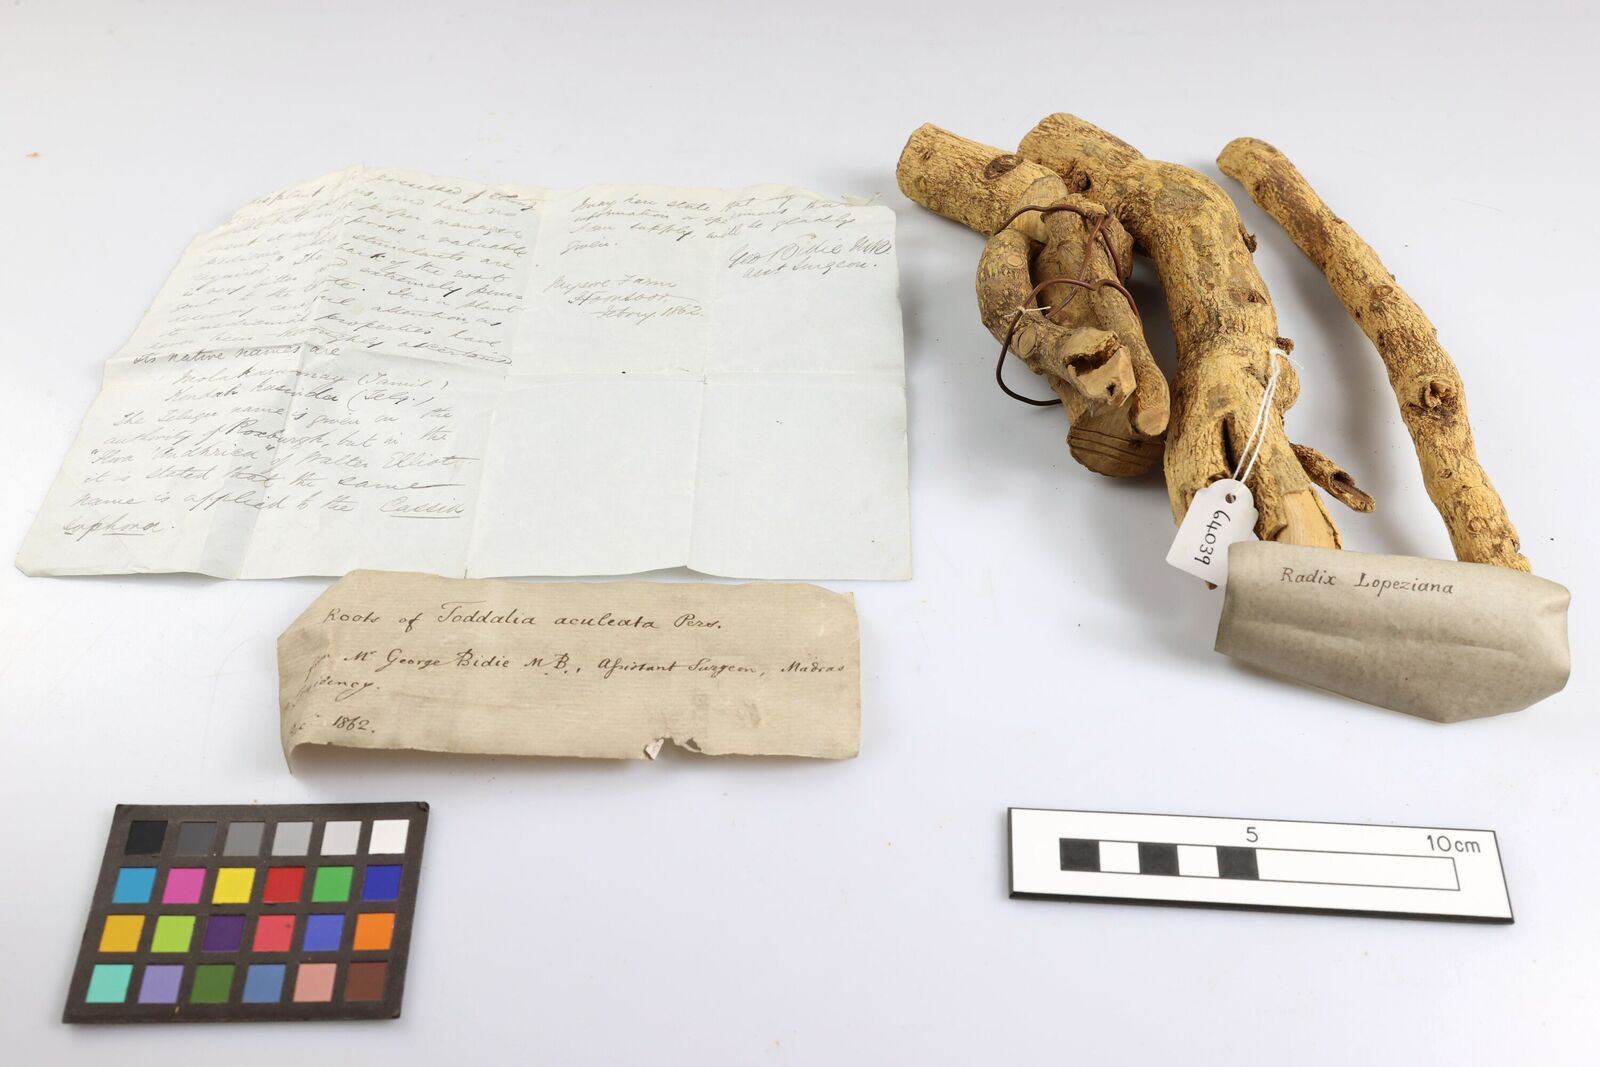 this plant
and have no
doubt but
under proper manage=
ment it might prove a valuable
medicine, when stimulants are
required. The bark of the root
is very bitter and extremely pun=
gent to the taste. It is a plant
deserving careful attention as
its medicinal properties have
never been thoroughly ascertained
Its native names are
Molakarunnay (Tamil.)
Kondah kasinda (Telg.)
The Telugu name is given on the
authority of Roxburgh, but in the
"Flora Andhrica" of Walter Elliot
it is stated that the same
name is applied to the Cassia
sophora.
I may here state that any
information or specimens
I can supply, will be gladly
given.
Geo Bidie M.B.
Asst Surgeon.
Mysore Farm
Hoonsoor
Febry. 1862.
Roots of Toddalia aculeata Pers.
Mr George Bidie M.B., Assistant Surgeon, Madras
1862.
64039
Radix Lopeziana
5
10cm